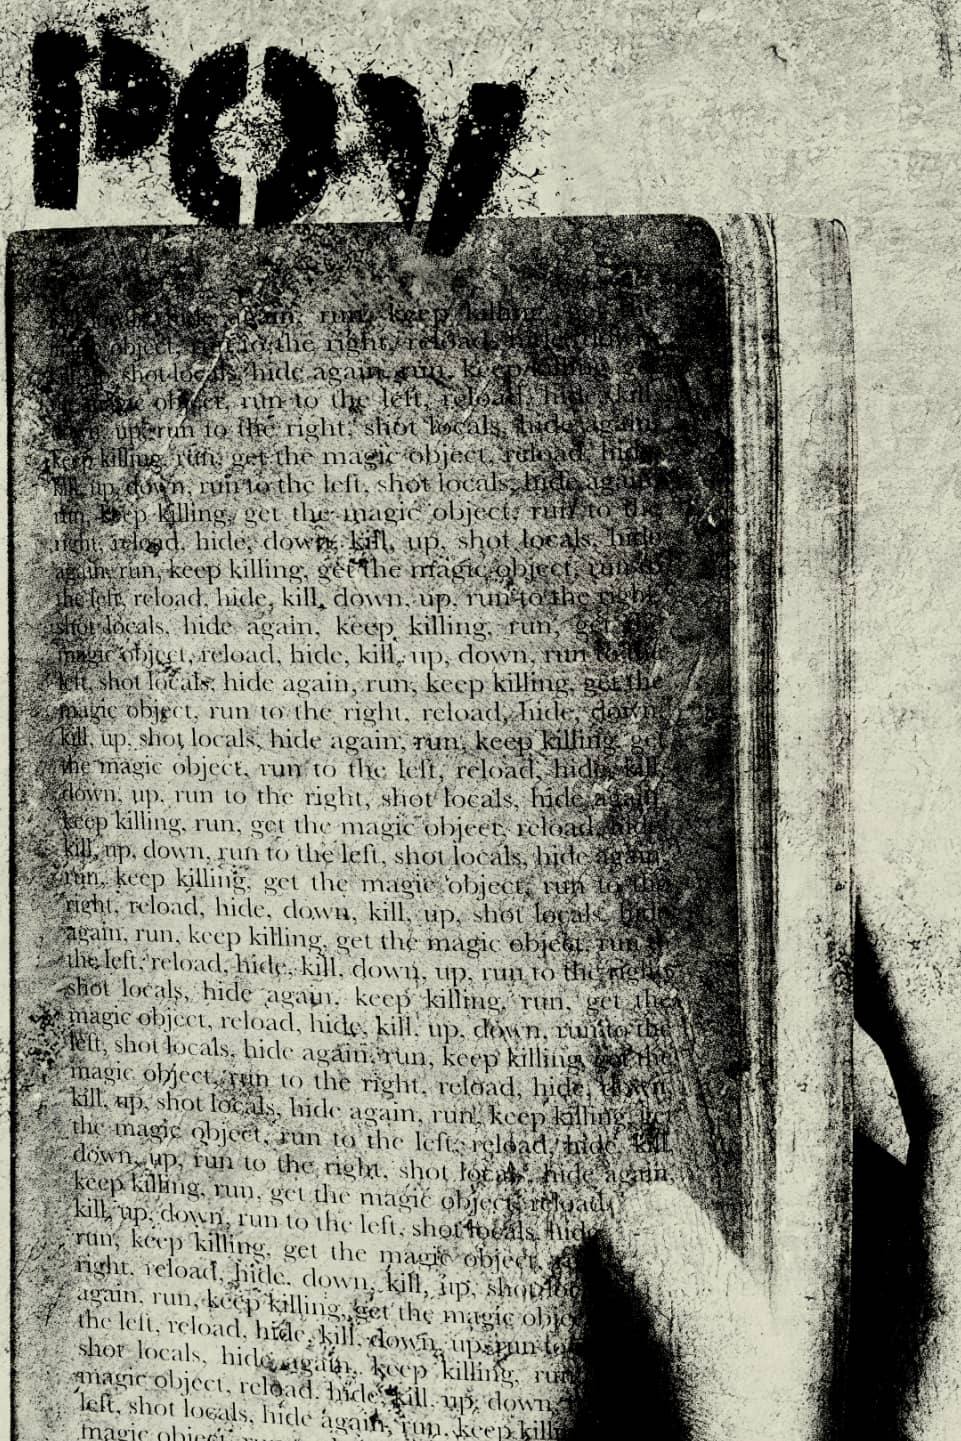 POV
again, run, keep killing, get the
object, run to the right, reload,
shot locals, hide again, run, keep killing,
magic object, run to the left, reload, hide, kill,
up, run to the right, shot locals, hide again,
keep killing, run, get the magic object, reload, hide,
kill, up, down, run to the left, shot locals, hide again,
run, keep killing, get the magic object, run to the
right, reload, hide, down, kill, up, shot locals, hide
again, run, keep killing, get the magic object, run to
the left, reload, hide, kill, down, up, run to the right,
shot locals, hide again, keep killing, run, get the
magic object, reload, hide, kill, up, down, run to the
left, shot locals, hide again, run, keep killing, get the
magic object, run to the right, reload, hide, down,
kill, up, shot locals, hide again, run, keep killing, get
the magic object, run to the left, reload, hide, kill,
down, up, run to the right, shot locals, hide again,
keep killing, run, get the magic object, reload, hide,
kill, up, down, run to the left, shot locals, hide again,
run, keep killing, get the magic object, run to the
right, reload, hide, down, kill, up, shot locals, hide
again, run, keep killing, get the magic object, run to
the left, reload, hide, kill, down, up, run to the right,
shot locals, hide again, keep killing, run, get the
magic object, reload, hide, kill, up, down, run to the
left, shot locals, hide again, run, keep killing, get the
magic object, run to the right, reload, hide, down,
kill, up, shot locals, hide again, run, keep killing, get
the magic object, run to the left, reload, hide, kill,
down, up, run to the right, shot locals, hide again,
keep killing, run, get the magic object, reload,
kill, up, down, run to the left, shot locals, hide
run, keep killing, get the magic object,
right, reload, hide, down, kill, up, shot
again, run, keep killing, get the magic
the left, reload, hide, kill, down, up, run
shot locals, hide again, keep killing,
magic object, reload, hide, kill, up, down,
left, shot locals, hide again, run, keep
magic object,